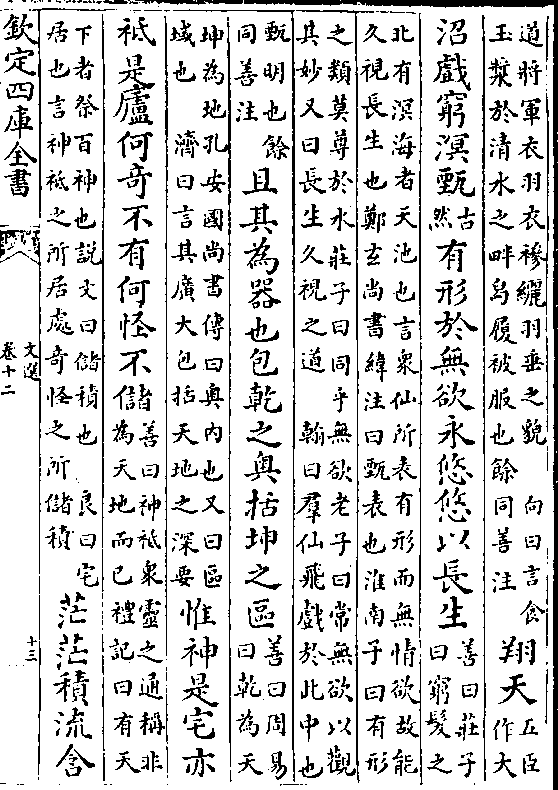 道將軍衣羽衣襂纚羽垂之貌　向曰言食
玉漿於清水之畔舄履被服也餘同善注
翔天
五臣
作大
沼戲窮溟甄
古
然
有形於無欲永悠悠以長生
善曰莊子
曰窮髮之
北有溟海者天池也言衆仙所表有形而無情欲故能
久視長生也鄭玄尚書緯注曰甄表也淮南子曰有形
之類莫尊於水莊子曰同乎無欲老子曰常無欲以觀
其妙又曰長生久視之道　翰曰羣仙飛戲於此中也
甄明也餘
同善注
且其為器也包乾之奥括坤之區
善曰周易
曰乾為天
坤為地孔安國尚書傳曰奥内也又曰區
域也　濟曰言其廣大包括天地之深要
惟神是宅亦
祗是廬何奇不有何怪不儲
善曰神祗衆靈之通稱非
為天地而已禮記曰有天
下者祭百神也説文曰儲積也　良曰宅
居也言神祗之所居處奇怪之所儲積
茫茫積流含
欽定四庫全書
文選
卷十二
十三